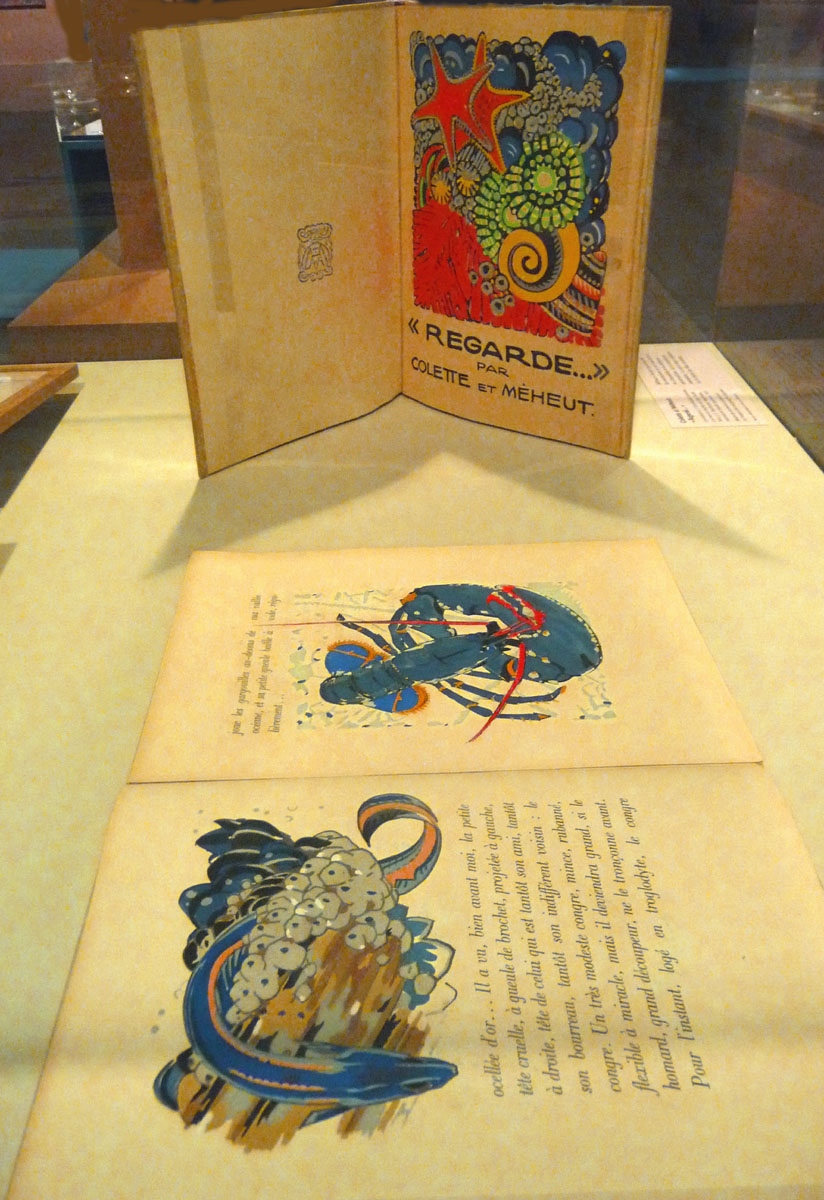 « REGARDE...»
PAR
COLETTE ET MÉHEUT.
joue les gargouilles au-dessus de
océane, et sa petite gueule bâille à vide
lièrement...
ocellée d'or... Il a vu, bien avant moi, la petite
tête cruelle, à gueule de brochet, projetée à gauche,
à droite, tête de celui qui est tantôt son ami, tantôt
son bourreau, tantôt son indifférent voisin : le
congre. Un très modeste congre, mince, rubanné,
flexible à miracle, mais il deviendra grand, si le
homard, grand découpeur, ne le tronçonne avant.
Pour l'instant, logé en troglodyte, le congre